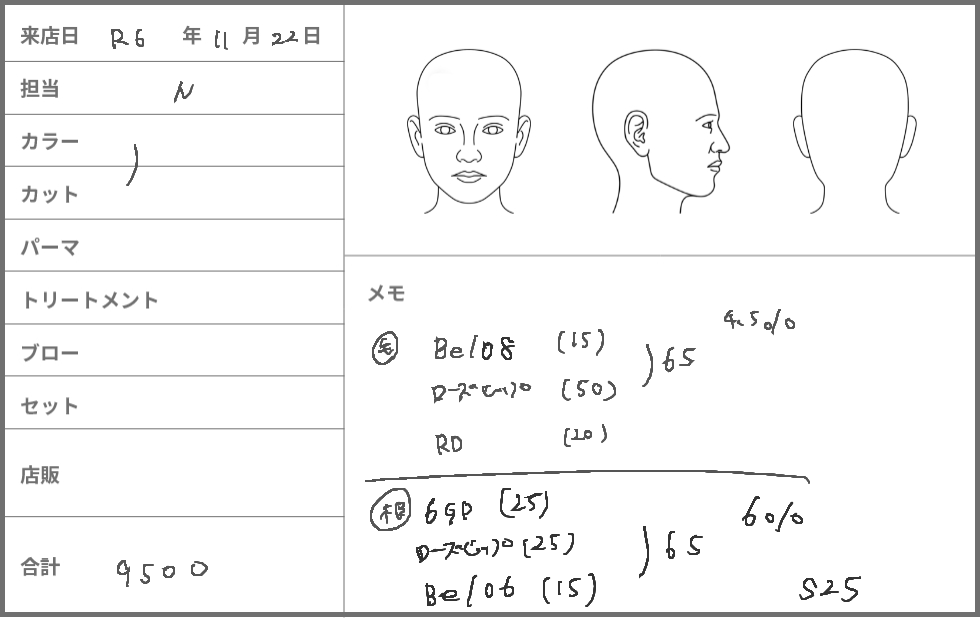 来店日 R6 年 11 月 22日
担当 N
カラー )
カット
パーマ
トリートメント
ブロー
セット
店販
合計 9500
メモ
4.5%
毛 Be/08 (15)
ローズピンク (50) ) 65
RD (20)
根 6GP (25) 6%
ローズピンク (25) ) 65
Be/06 (15) S25